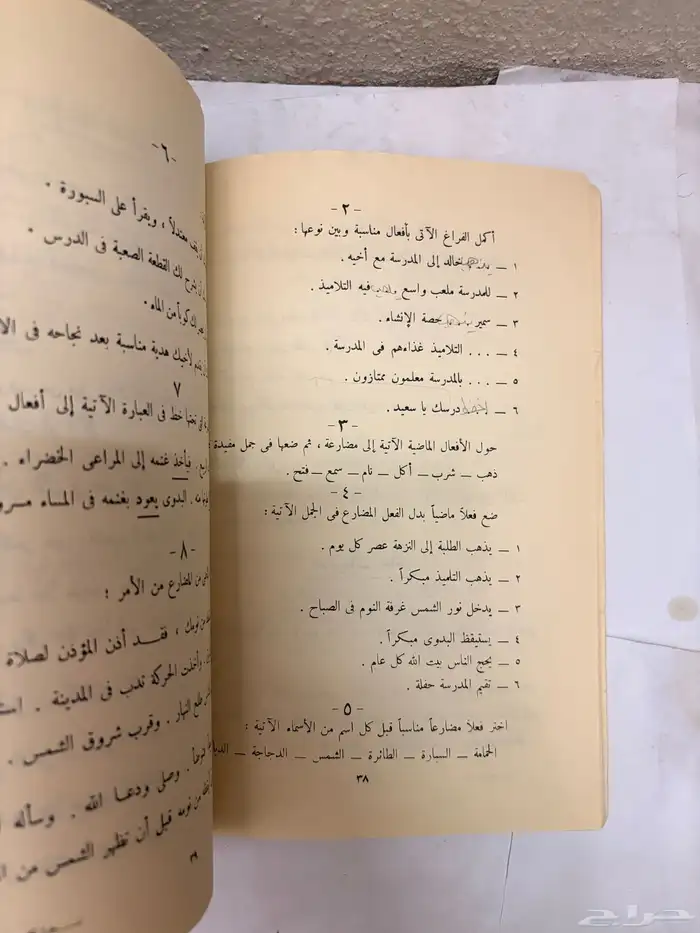 - ٢ -
أكمل الفراغ الآتى بأفعال مناسبة وبين نوعها :
١ — خالد إلى المدرسة مع أخيه .
٢ — للمدرسة ملعب واسع فيه التلاميذ .
٣ — سمير حصة الإنشاء .
٤ — . . . التلاميذ غذاءهم فى المدرسة .
٥ — . . . بالمدرسة معلمون ممتازون .
٦ — درسك يا سعيد .
- ٣ -
حول الأفعال الماضية الآتية إلى مضارعة ، ثم ضعها فى جمل مفيدة :
ذهب — شرب — أكل — نام — سمع — فتح .
- ٤ -
ضع فعلاً ماضياً بدل الفعل المضارع فى الجمل الآتية :
١ — يذهب الطلبة إلى النزهة عصر كل يوم .
٢ — يذهب التلميذ مبكراً .
٣ — يدخل نور الشمس غرفة النوم فى الصباح .
٤ — يستيقظ البدوى مبكراً .
٥ — يحج الناس بيت الله كل عام .
٦ — تقيم المدرسة حفلة .
- ٥ -
اختر فعلاً مضارعاً مناسباً قبل كل اسم من الأسماء الآتية :
الحمامة — السيارة — الطائرة — الشمس — الدجاجة —
٣٨
-٦-
معتدلاً ، ويقرأ على السبورة .
يشرح لك القطعة الصعبة فى الدرس .
كوباً من الماء .
لأخيك هدية مناسبة بعد نجاحه فى
٧
تحتها خط فى العبارة الآتية إلى أفعال
فيأخذ غنمه إلى المراعى الخضراء .
البدوى يعود بغنمه فى المساء
-٨-
المضارع من الأمر :
من نومك ، فقد أذن المؤذن لصلاة
وأخذت الحركة تدب فى المدينة .
طلع النهار . وقرب شروق الشمس .
وصلى ودعا الله . وسأله
من نومه قبل أن تظهر الشمس من
٣٩
حراج